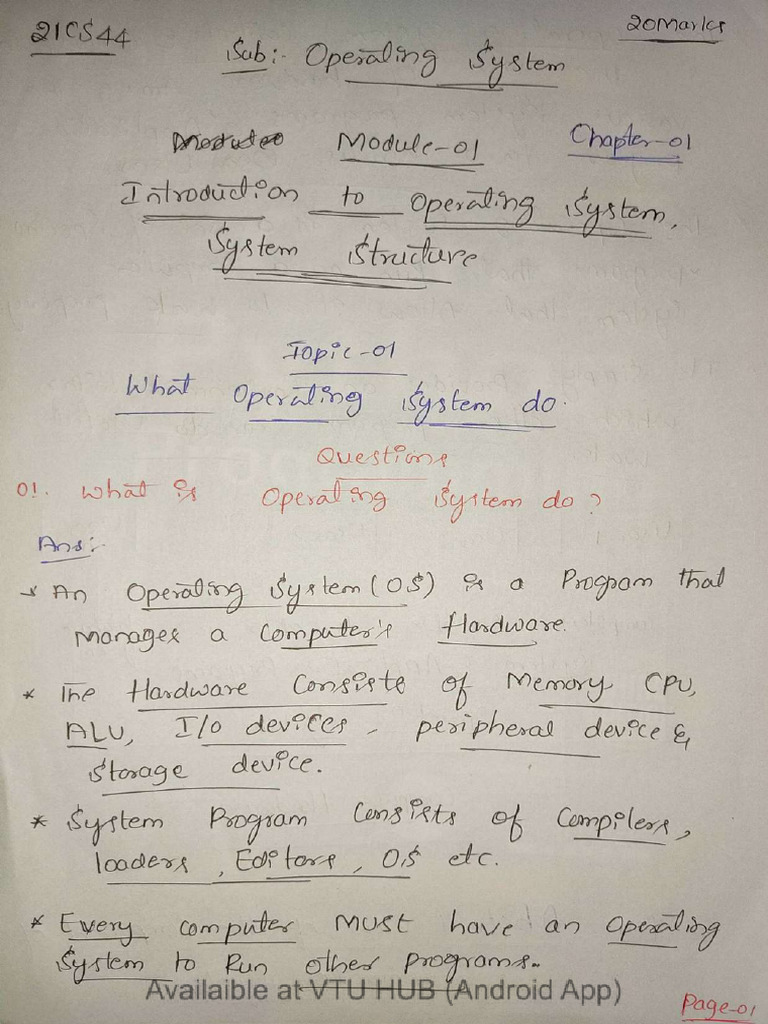 21CS44
20Marks
Sub:- Operating System
Module-01
Chapter-01
Introduction to Operating System,
System Structure
Topic-01
What Operating System do.
Questions
01. What is Operating System do?
Ans:-
* An Operating System (OS) is a Program that
manages a Computer's Hardware.
* The Hardware Consists of Memory CPU,
ALU, I/O devices, peripheral device &
Storage device.
* System Program Consists of Compilers,
loaders, Editors, OS etc.
* Every computer MUST have an Operating
System to Run other programs.
Availaible at VTU HUB (Android App)
Page-01